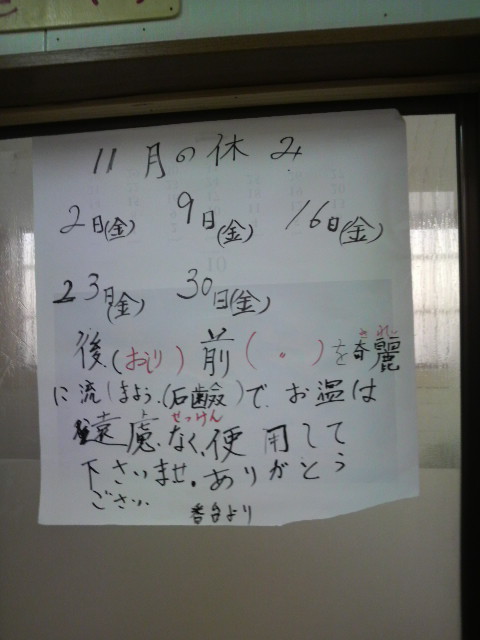 11月の休み
2日(金) 9日(金) 16日(金)
23日(金) 30日(金)
後(おしり)前(。)を奇麗
に流しましょう.(石鹸)で.お温は
せっけん
遠慮なく、使用して
下さいませ。ありがとう
ござい
番台より